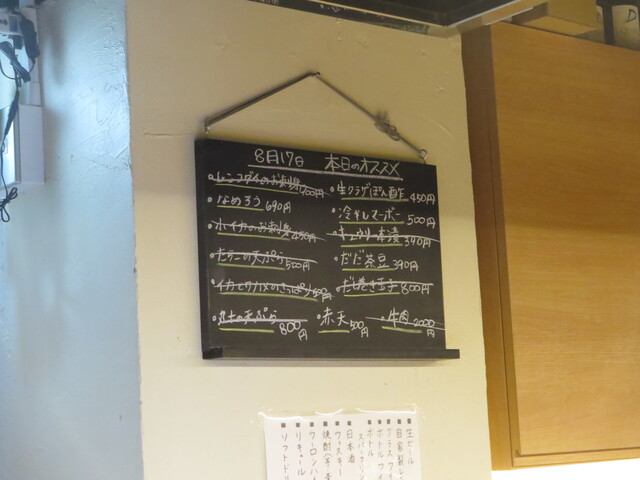 8月17日 本日のオススメ
レンコダイのお刺身 700円
なめろう 690円
ホイカのお刺身 450円
たらこの天ぷら 500円
イカとワカメのさっぱり
の天ぷら 800円
生クラゲぽん酢 450円
冷やしマーボー 500円
キュウリ一本漬 390円
だだ茶豆 390円
だし巻き玉子 800円
赤天 500円
牛肉 2000円
生ビール
自家製
グラスワイ
ボトルワイ
ボトル
スパークリン
日本酒
ウィスキー
焼酎(芋・麦
ウーロンハイ
リキュール
ソフトドリ